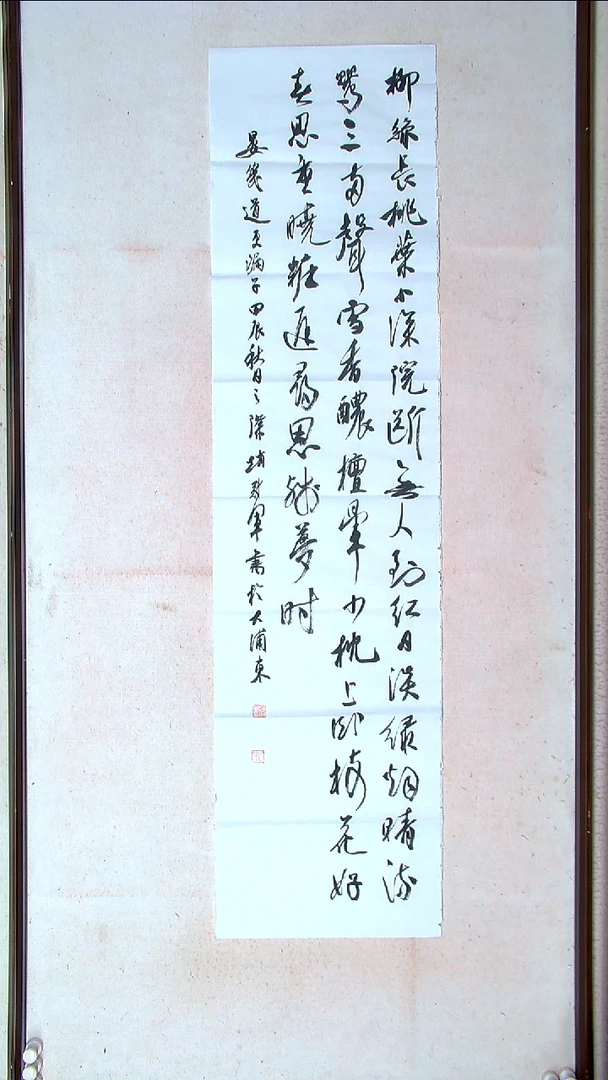 柳絲長桃葉小深院斷無人到紅日淡綠烟晴流
鶯三兩聲雪香醲檀暈少枕上卧枝花好
春思重曉粧遲尋思殘夢时
晏幾道更漏子甲辰秋日軍書於大浦東